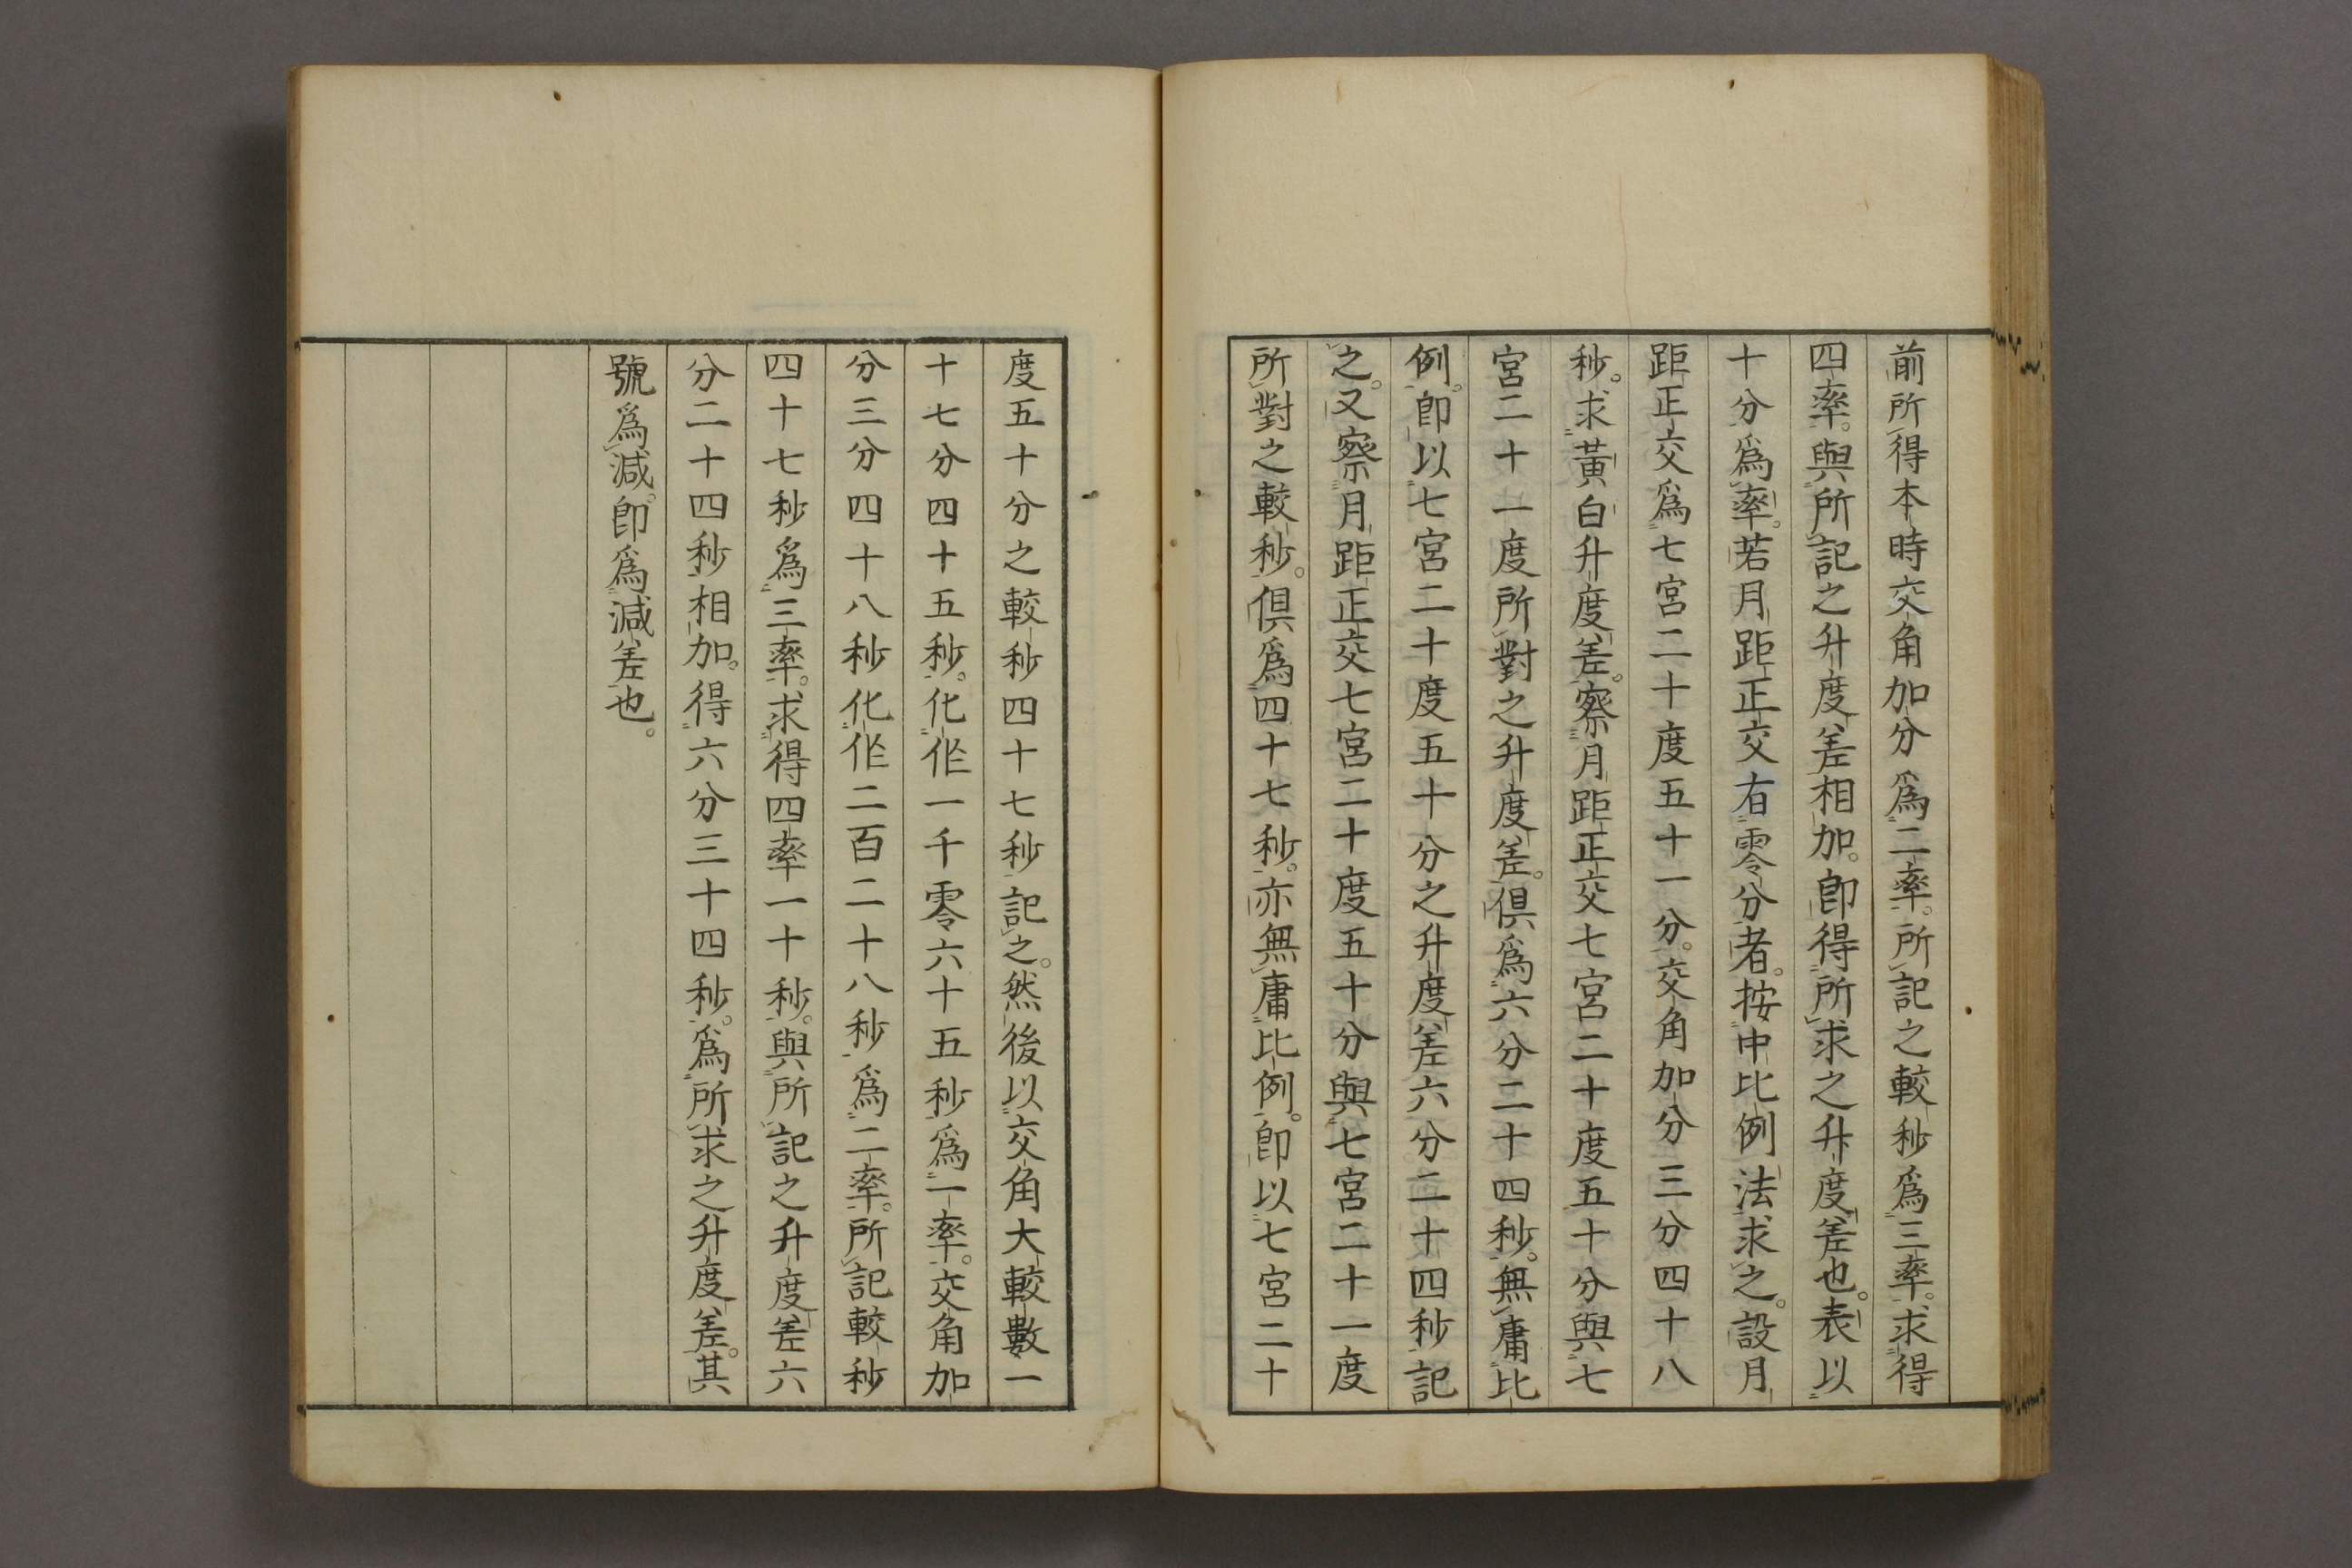 前所得本時交角加分爲二率。所記之較秒爲三率。求得
四率。與所記之升度差相加。即得所求之升度差也。表以
十分爲率。若月距正交有零分者。按中比例法求之。設月
距正交爲七宮二十度五十一分。交角加分三分四十八
秒。求黃白升度差。察月距正交七宮二十度五十分與七
宮二十一度所對之升度差。俱爲六分二十四秒。無庸比
例。即以七宮二十度五十分之升度差六分二十四秒記
之。又察月距正交七宮二十度五十分與七宮二十一度
所對之較秒。俱爲四十七秒。亦無庸比例。即以七宮二十
度五十分之較秒四十七秒記之。然後以交角大較數一
十七分四十五秒。化作一千零六十五秒爲一率。交角加
分三分四十八秒化作二百二十八秒爲二率。所記較秒
四十七秒爲三率。求得四率一十秒。與所記之升度差六
分二十四秒相加。得六分三十四秒。爲所求之升度差。其
號爲減。即爲減差也。